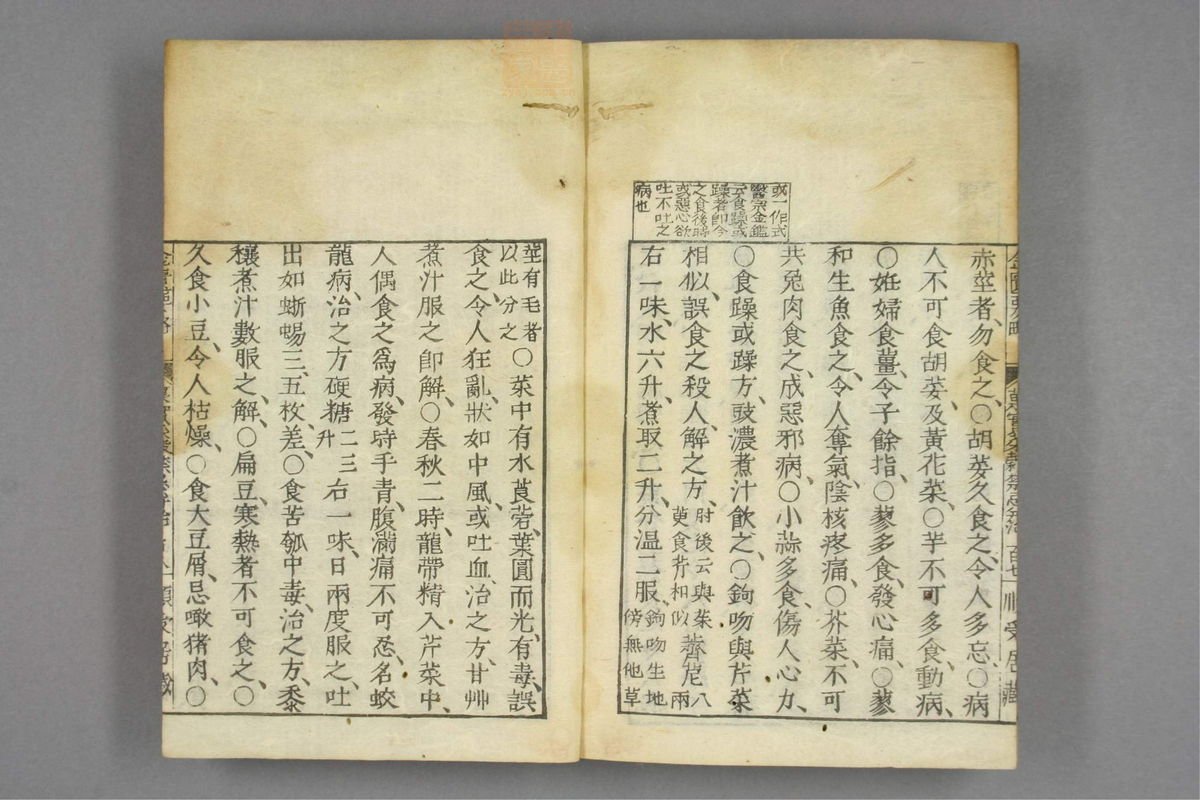 赤莖者、勿食之、〇胡荽久食之、令人多忘、〇病
人不可食胡荽及黃花菜、〇芋不可多食、動病、
〇妊婦食薑、令子餘指、〇蓼多食、發心痛、〇蓼
和生魚食之、令人奪氣、陰核疼痛、〇芥菜、不可
共兔肉食之、成惡邪病、〇小蒜多食、傷人心力、
〇食躁或躁方、豉濃煮汁飲之、〇鉤吻與芹菜
相似、誤食之殺人、解之方、肘後云與茱萸食芹相似薺苨八兩
右一味、水六升、煮取二升、分溫二服、鉤吻生地傍無他草
或一作式
醫宗金鑑
云食躁或
躁者即今
之食後時
或惡心欲
吐不吐之
病也
莖有毛者以此分之〇菜中有水莨菪、葉圓而光、有毒、誤
食之、令人狂亂、狀如中風、或吐血、治之方、甘艸
煮汁服之即解、〇春秋二時、龍帶精入芹菜中、
人偶食之爲病、發時手青、腹滿痛不可忍、名蛟
龍病、治之方、硬糖二三升右一味、日兩度服之、吐
出如蜥蜴三五枚、差、〇食苦瓠中毒、治之方、黍
穰煮汁數服之、解、〇扁豆、寒熱者不可食之、〇
久食小豆、令人枯燥、〇食大豆屑、忌啖猪肉、〇